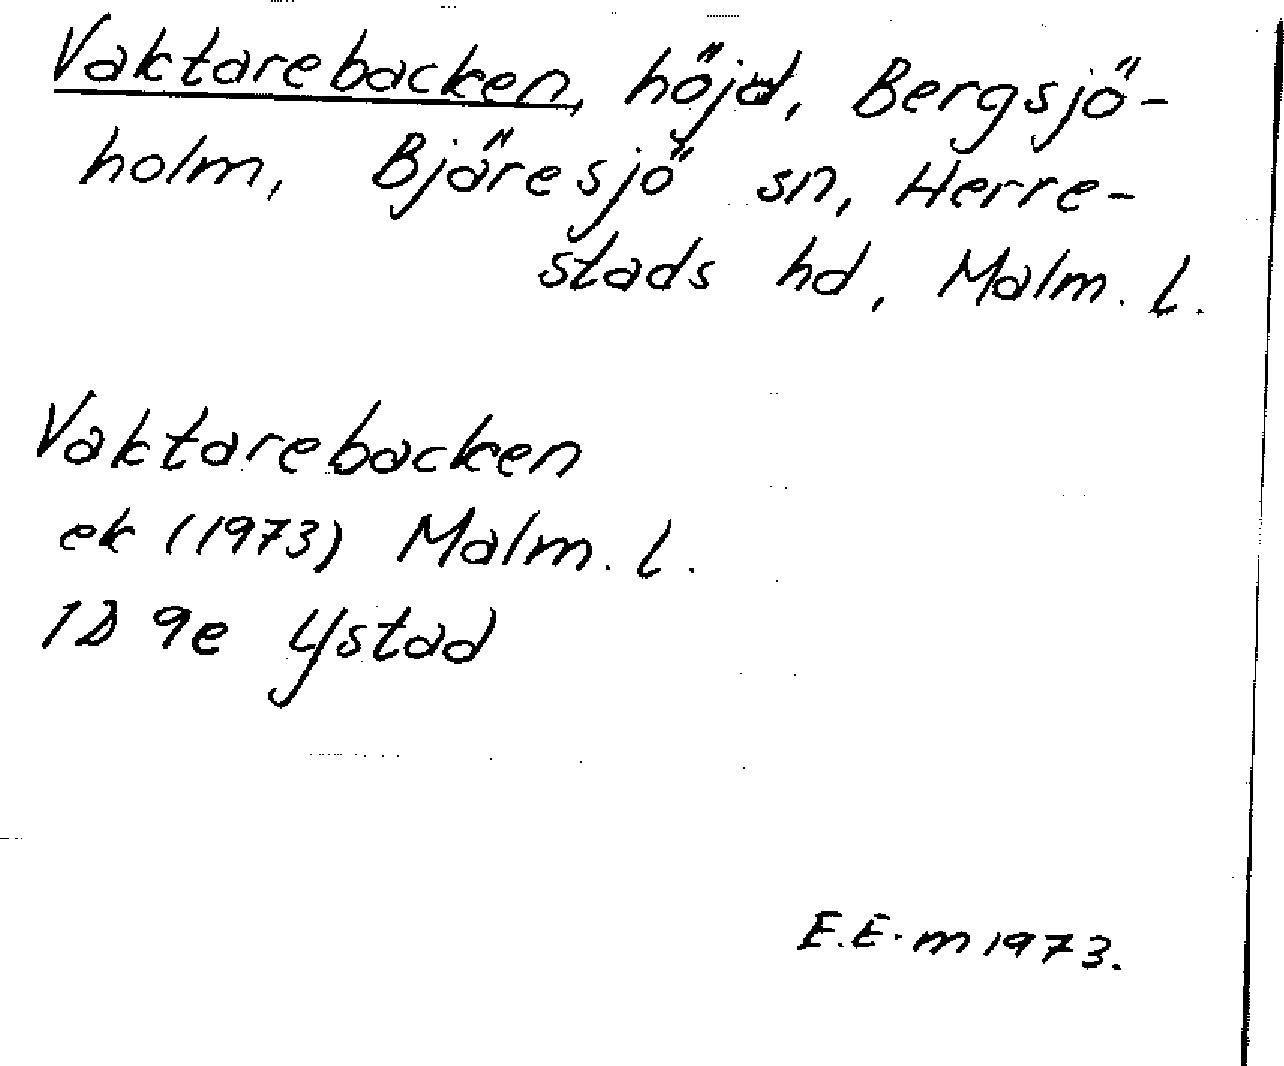 Vaktarebacken, höjd, Bergsjö-
holm, Bjäresjö sn, Herre-
stads hd, Malm. l.
Vaktarebacken
ek (1973) Malm. l.
1D 9e Ystad
E.E-m 1973.